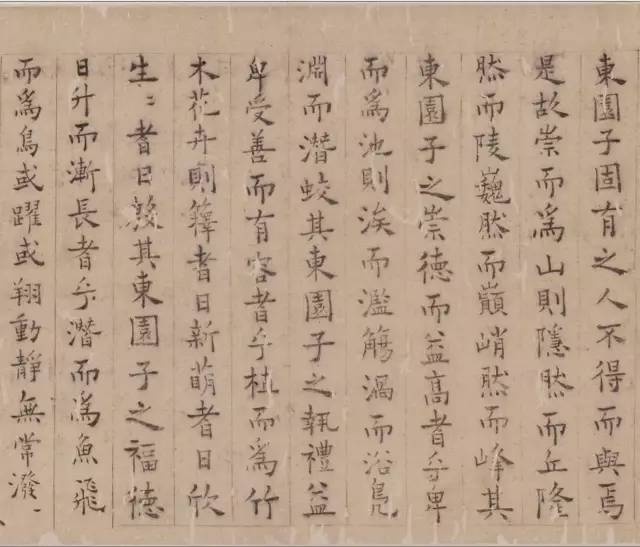 東園子固有之人不得而與焉
是故崇而爲山則隱然而丘隆
然而陵巍然而巔峭然而峰其
東園子之崇德而益高者乎卑
而爲池則涘而濫觴渦而浴鳧
淵而潛蛟其東園子之執禮益
卑受善而有容者乎而爲竹
木花卉則籜者日新萌者日欣
生〻者日其東園子之福德
日升而漸長者乎潛而爲魚飛
而爲鳥或躍或翔動靜無常潑